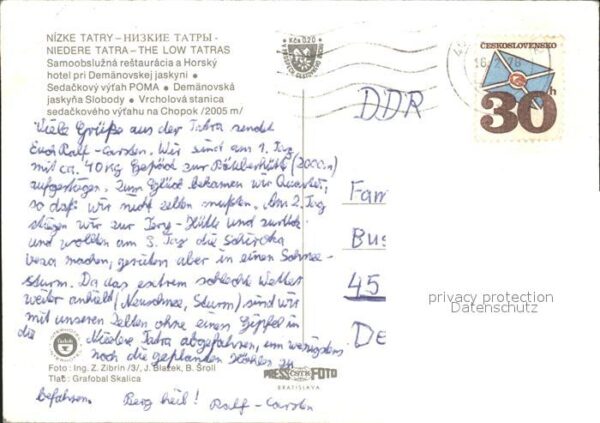 NÍZKE TATRY – НИЗКИЕ ТАТРЫ ·
NIEDERE TATRA – THE LOW TATRAS
Samoobslužná reštaurácia a Horský
hotel pri Demänovskej jaskyni ●
Sedačkový výťah POMA ● Demänovská
jaskyňa Slobody ● Vrcholová stanica
sedačkového výťahu na Chopok /2005 m/
Kčs 0,20
ČESKOSLOVENSKO
30h
DDR
Viele Grüße aus der Tatra sendet
Euch Ralf-Carsten. Wir sind am 1. Tag
mit ca. 40 kg Gepäck zur (2000m)
aufgestiegen. Zum Glück bekamen wir Quartier,
so daß wir nicht zelten mußten. Am 2. Tag
stiegen wir zur -Hütte und zurück
und wollten am 3. Tag die
machen, gerieten aber in einen Schnee-
sturm. Da das extrem schlechte Wetter
weiter anhielt (Neuschnee, Sturm) sind wir
mit unseren Zelten ohne einen Gipfel in
die Niedere Tatra abgefahren, um wenigstens
noch die geplanten Höhlen zu
befahren. Berg heil! Ralf-Carsten
Fam
Bus
45
De
privacy protection
Datenschutz
Foto: Ing. Z. Zibrin /3/, J. Blažek, B. Šroll
Tlač: Grafobal Skalica
PRESS ČSTK FOTO
BRATISLAVA